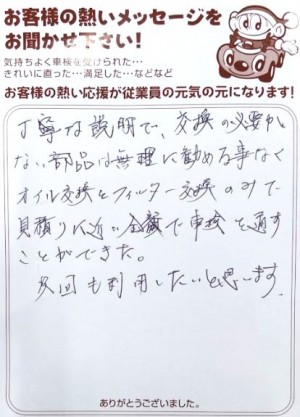 お客様の熱いメッセージを
お聞かせ下さい!
気持ちよく車検を受けられた…
きれいに直った…満足した…などなど
お客様の熱い応援が従業員の元気の元になります!
丁寧な説明で、交換の必要が
ない部品は無理に勧める事なく
オイル交換とフィルター交換のみで
見積りに近い金額で車検を通す
ことができた。
次回も利用したいと思います。
ありがとうございました。